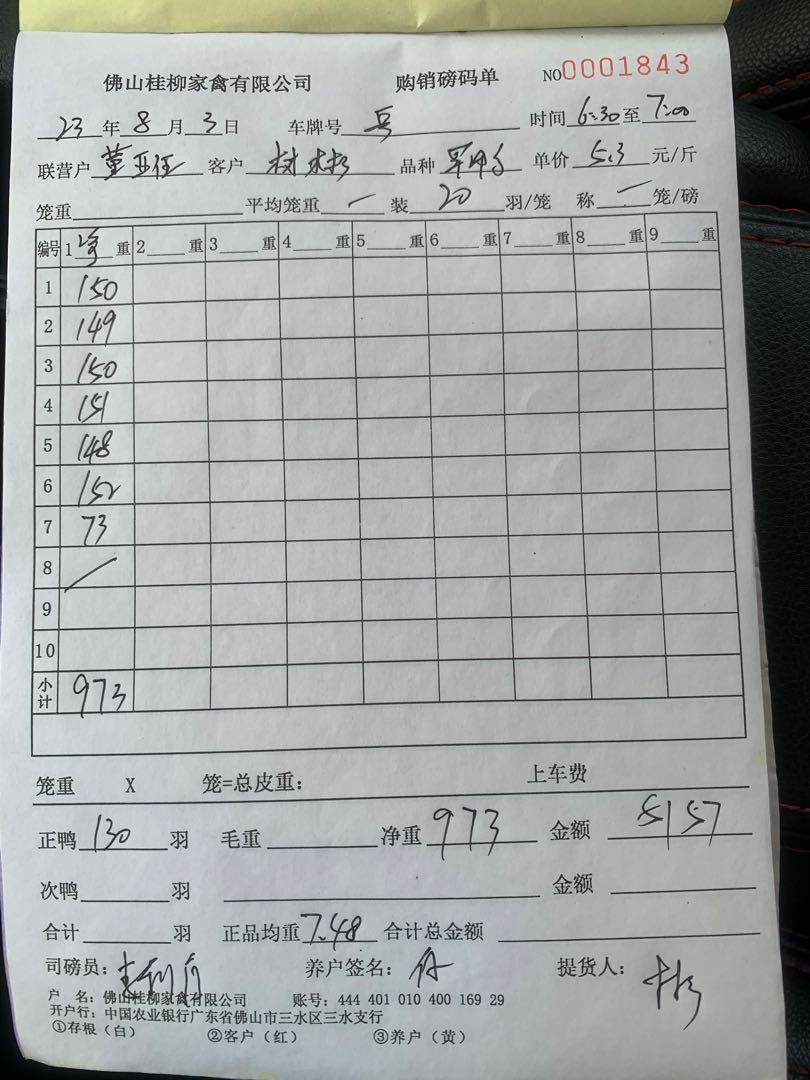 佛山桂柳家禽有限公司 购销磅码单 NO0001843
23年8月3日 车牌号 时间6:30至7:00
联营户 客户 树木杉 品种 单价5.3元/斤
笼重 平均笼重 一 装20羽/笼 称一笼/磅
编号 1 重 2 重 3 重 4 重 5 重 6 重 7 重 8 重 9 重
1 150
2 149
3 150
4 151
5 148
6 152
7 73
8
9
10
小计 973
笼重 X 笼=总皮重: 上车费
正鸭130羽 毛重 净重973 金额5157
次鸭 羽 金额
合计 羽 正品均重7.48 合计总金额
司磅员: 养户签名: 提货人:
户 名: 佛山桂柳家禽有限公司 账号: 444 401 010 400 169 29
开户行: 中国农业银行广东省佛山市三水区三水支行
①存根(白) ②客户(红) ③养户(黄)